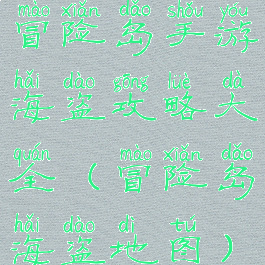 mào xiǎn dǎo shǒu yóu
冒险岛手游
hǎi dào gōng lüè dà
海盗攻略大
quán mào xiǎn dǎo
全（冒险岛
hǎi dào dì tú
海盗地图）